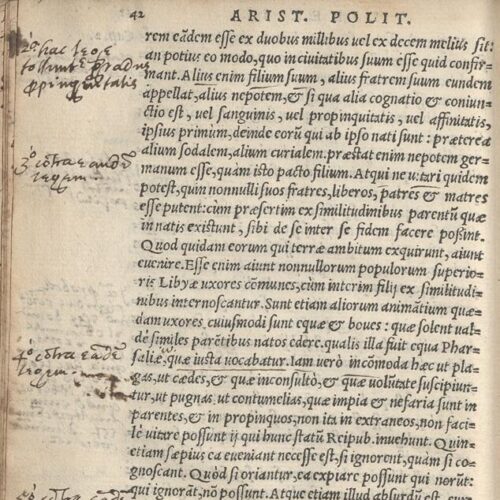 42 ARIST. POLIT.
rem eãdem esse ex duobus millibus vel ex decem melius sit:
an potius eo modo, quo in ciuitatibus suum esse quid confir-
mant. Alius enim filium suum, alius fratrem suum eundem
appellat, alius nepotem, & si qua alia cognatio & coniun-
ctio est, vel sanguinis, vel propinquitatis, vel affinitatis,
ipsius primùm, deinde eorũ qui ab ipso nati sunt: præterea
alium sodalem, alium curialem. præstat enim nepotem ger-
manum esse, quàm isto pacto filium. Atqui ne vitari quidem
potest, quin nonnulli suos fratres, liberos, patres & matres
esse putent: cùm præsertim ex similitudinibus parentũ quæ
in natis existunt, sibi de se inter se fidem facere possint.
Quod quidam eorum qui terræ ambitum exquirunt, aiunt
euenire. Esse enim aiunt nonnullorum populorum superio-
ris Libyæ vxores cõmunes, cùm interim filij ex similitudi-
nibus internoscantur. Sunt etiam aliorum animãtium quæ-
dam vxores, cuiusmodi sunt equæ & boues: quæ solent val-
de similes parẽtibus natos edere. qualis illa fuit equa Phar-
saliæ, quæ iusta vocabatur. Iam verò incõmoda hæc vt pla-
gas, vt cædes, & quæ inconsultò, & quæ volũtate suscipiun-
tur, vt pugnas, vt contumelias, quæ impia & nefaria sunt in
parentes, & in propinquos, non ita in extraneos, non faci-
lè vitare possunt ij qui hunc statũ Reipub. inuehunt. Quin-
etiam sæpius ea eueniant necesse est, si ignorent, quàm si co-
gnoscant. Quòd si oriantur, ea expiare possunt qui norũt:
qui ignorãt, nõ possunt. Atque etiam illud absurdũ est, eum
2º hac lege
tolluntur gradus
propinquitatis
3º cõtra eandẽ
legem
4º cõtra eandẽ
legem